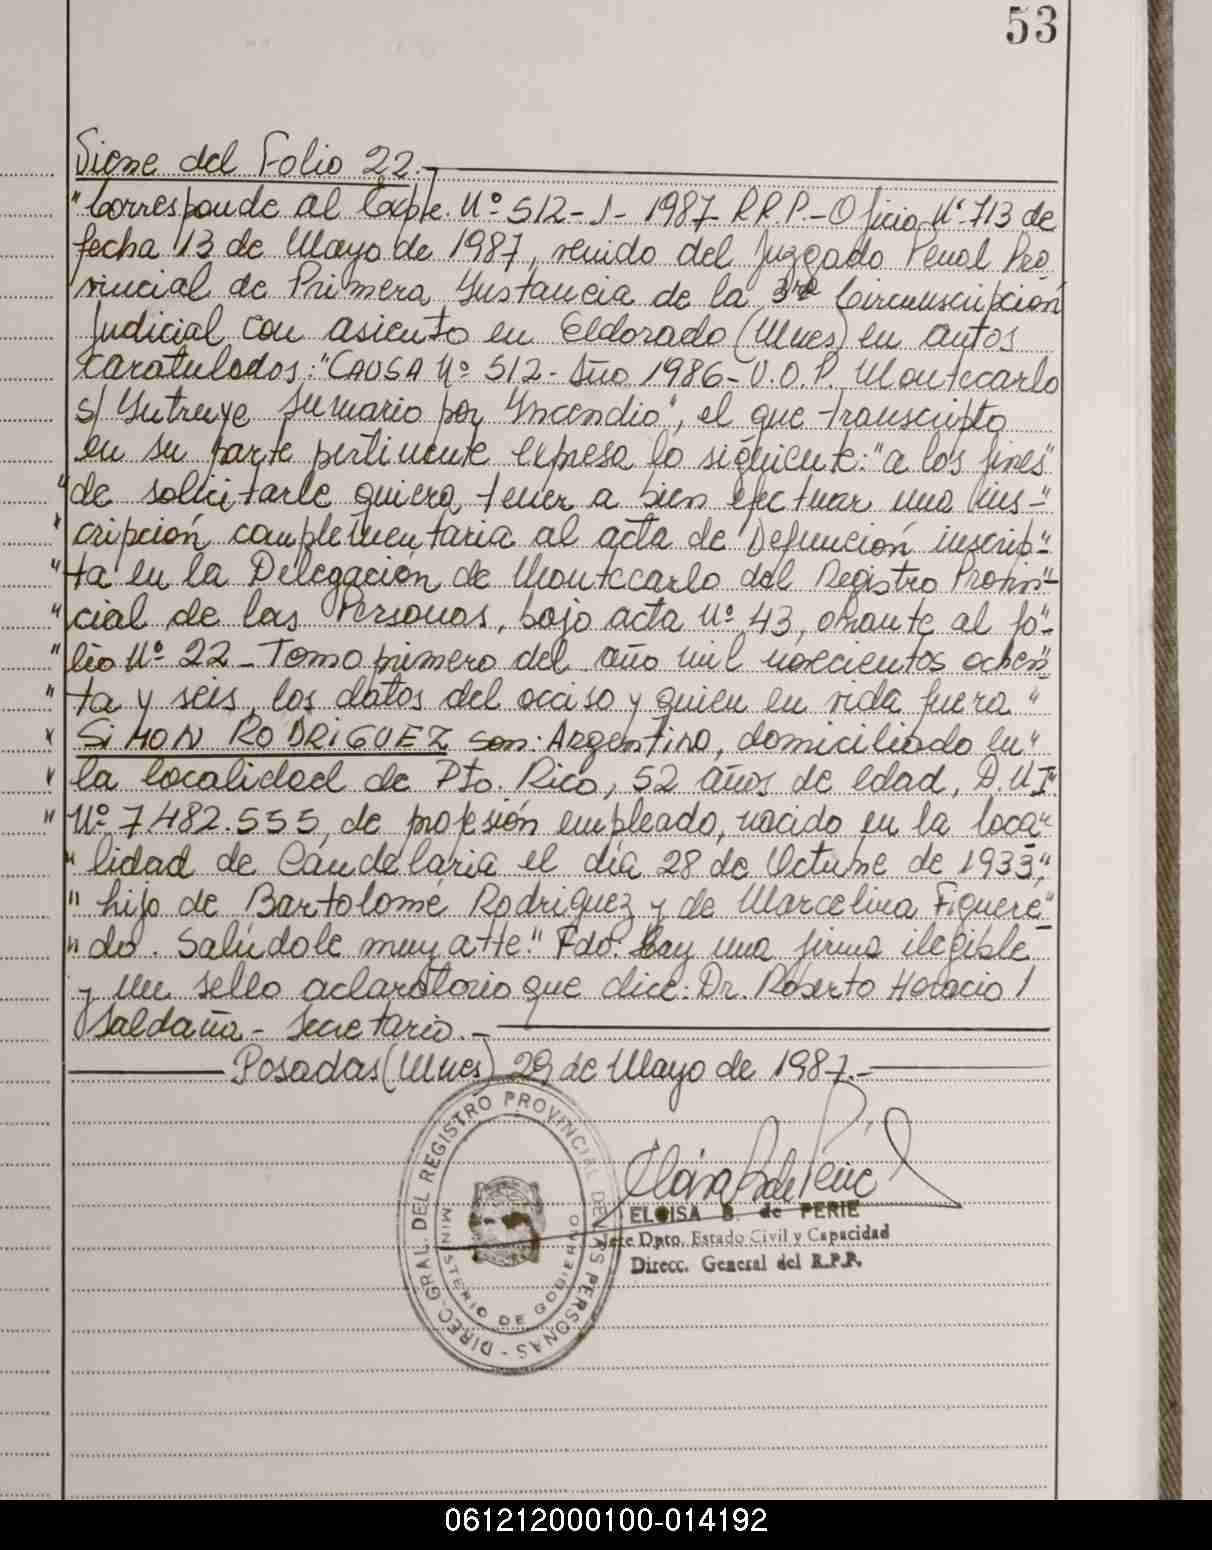 53
Viene del Folio 22.-
"Corresponde al Expte. Nº 512-J-1987-R.R.P.-Oficio Nº 713 de
fecha 13 de Mayo de 1987, venido del Juzgado Penal Pro
vincial de Primera Instancia de la 3ra Circunscripción
Judicial con asiento en Eldorado (Mnes) en autos
caratulados: "CAUSA Nº 512- Año 1986-U.O.P. Montecarlo
s/ Intruye Sumario por Incendio", el que transcripto
en su parte pertinente expresa lo siguiente: "a los fines"
"de solicitarle quiera tener a bien efectuar una ins-"
"cripción complementaria al acta de Defunción inscrip-"
"ta en la Delegación de Montecarlo del Registro Provin"-
"cial de las Personas, bajo acta Nº 43, obrante al fo"-
"lio Nº 22-Tomo primero del año mil novecientos ochen"
"ta y seis, los datos del occiso y quien en vida fuera "
" SIMON RODRIGUEZ son: Argentino, domiciliado en"
" la localidad de Pto. Rico, 52 años de edad, D.N.I"
" Nº 7.482.555, de profesión empleado, nacido en la loca"
" lidad de Candelaria el día 28 de Octubre de 1933,"
" hijo de Bartolomé Rodriguez y de Marcelina Figuere"-
" do. Salúdole muy atte." Fdo. Hay una firma ilegible
y un sello aclaratorio que dice: Dr. Roberto Horacio
Saldaña- Secretario.-
Posadas (Mnes) 29 de Mayo de 1987.-
DIREC. GRAL. DEL REGISTRO PROVINCIAL DE LAS PERSONAS -
MINISTERIO DE GOBIERNO
ELOISA B. de PERIE
Jefe Dpto. Estado Civil y Capacidad
Direcc. General del R.P.P.
061212000100-014192